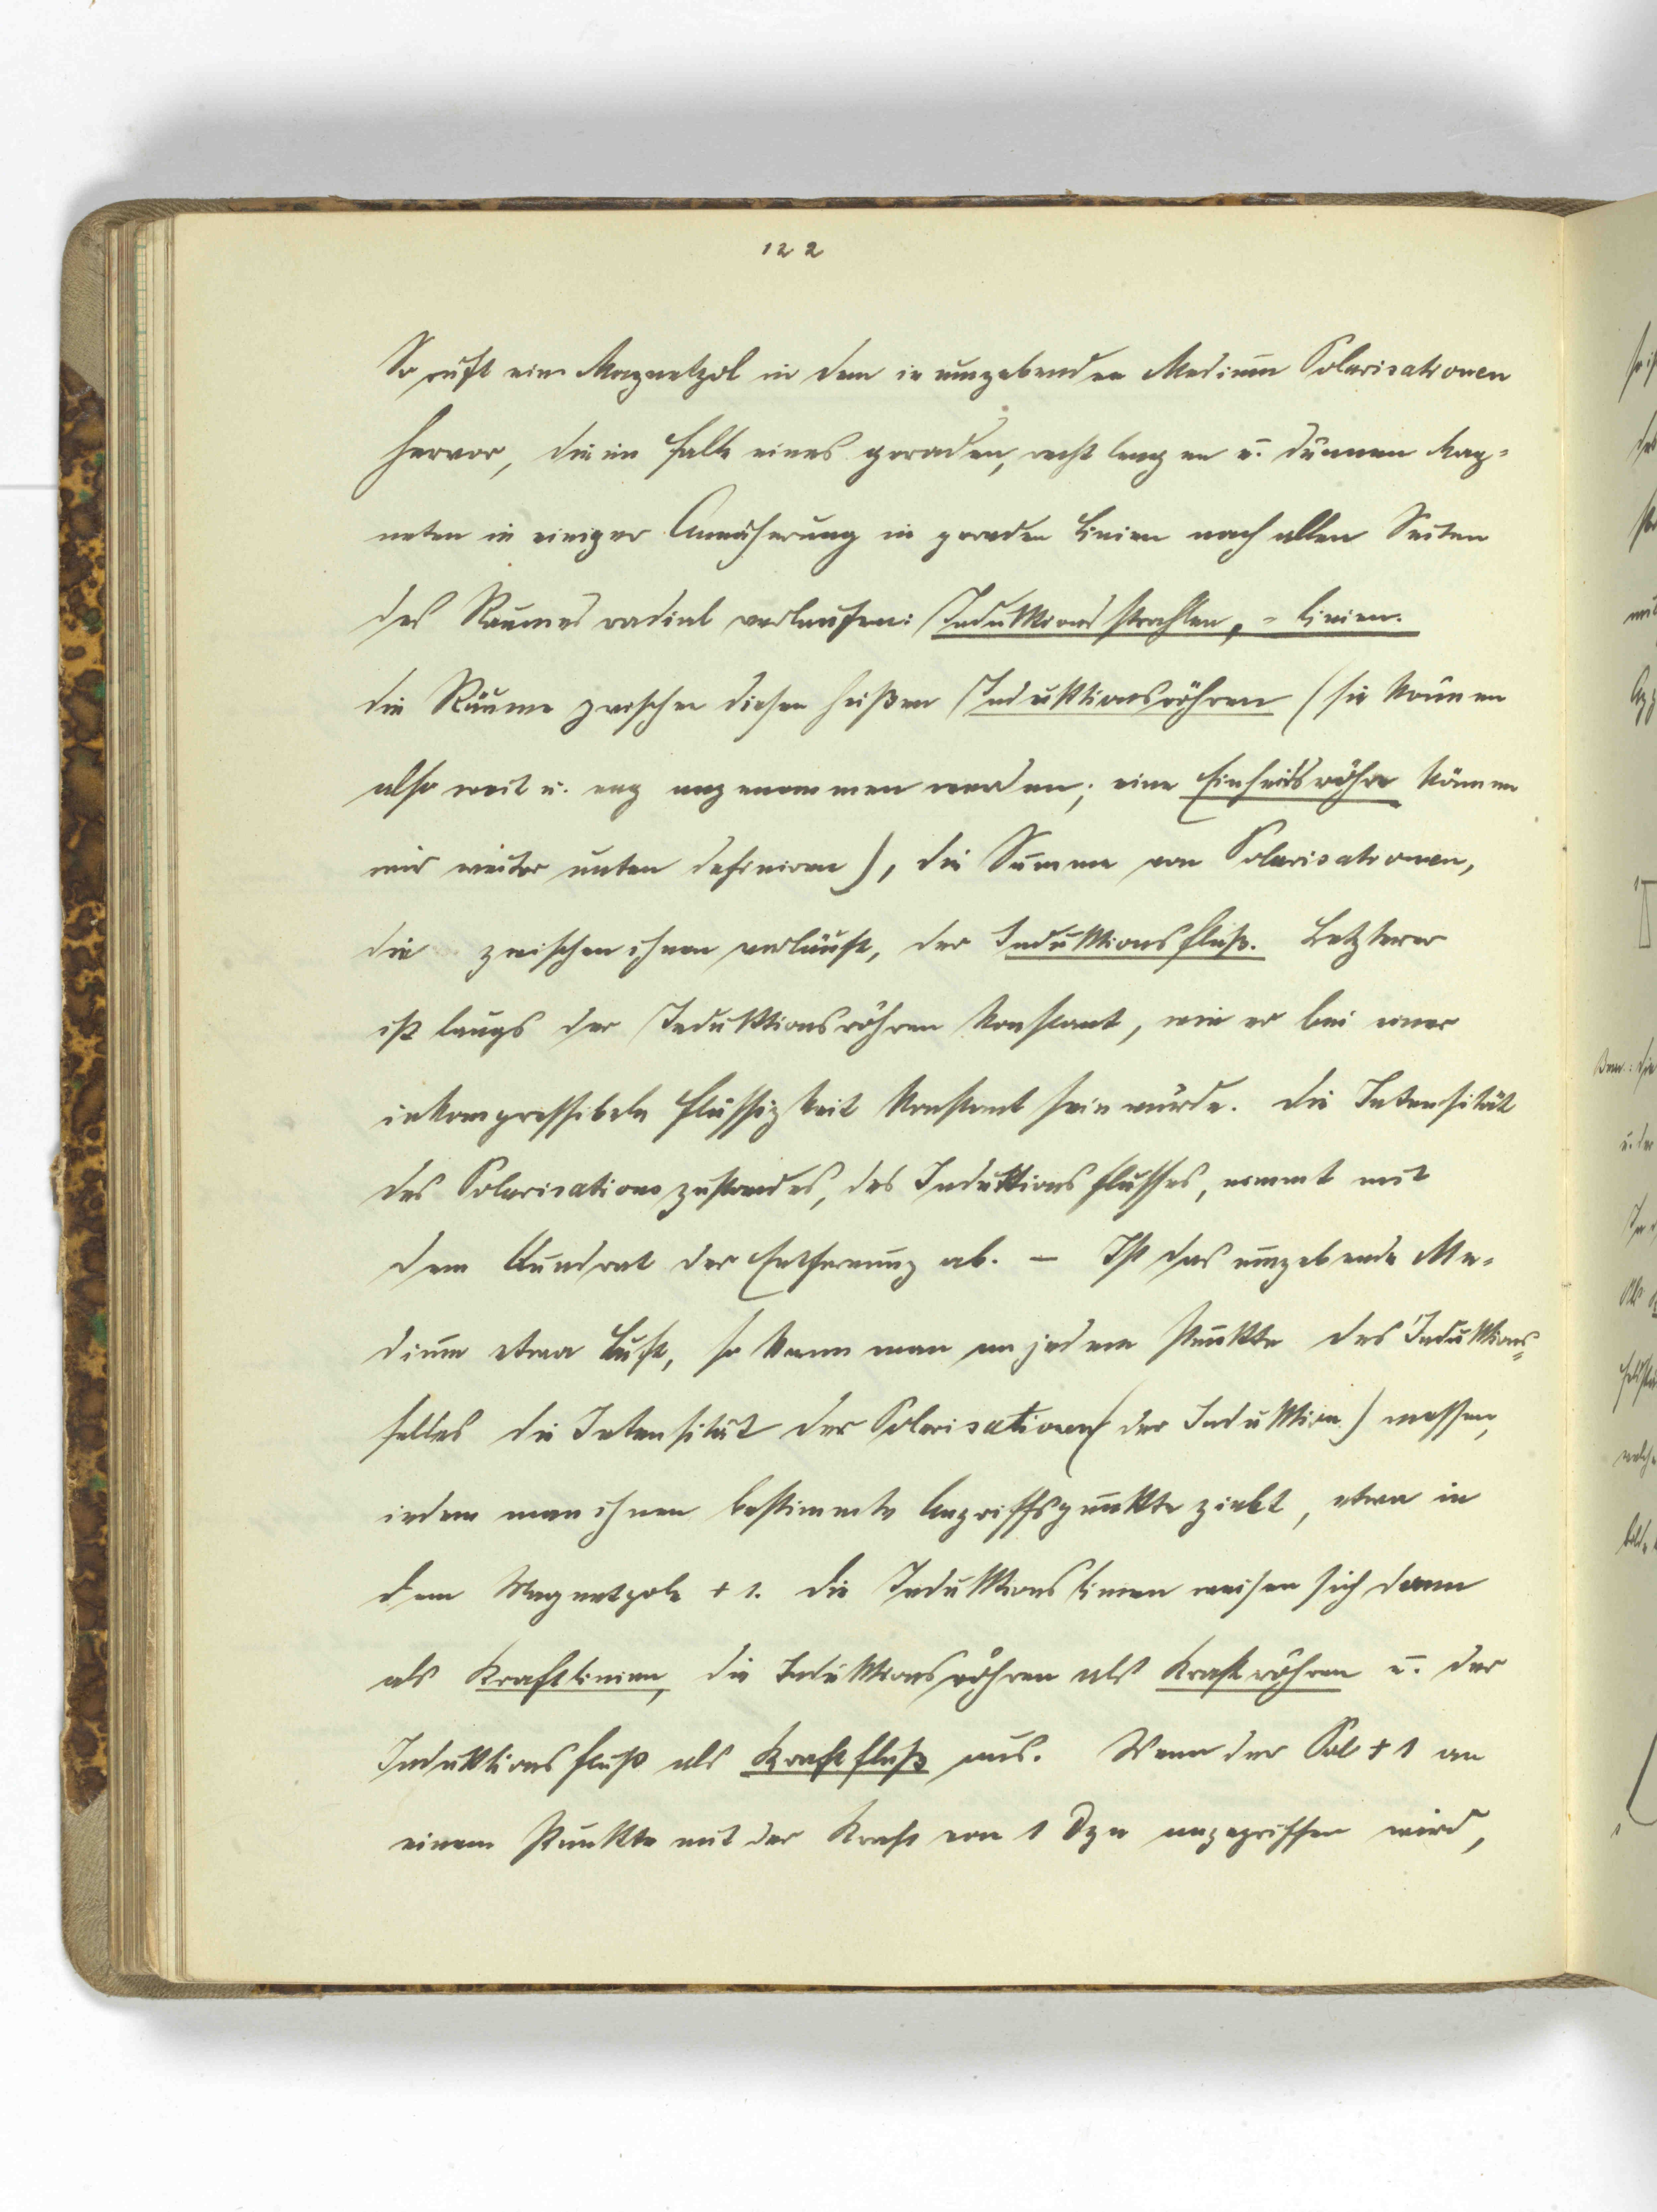 122
So ruft ein Magnetpol in dem in umgebenden Medium Polarisationen
hervor, die im Falle eines geraden, recht langen u. dünnen Mag-
neten in einiger Annäherung in geraden Linien nach allen Seiten
des Raumes radial verlaufen: Induktionsstrahlen, - linien.
Die Räume zwischen diesen heißen Induktionsröhren (sie können
also weit u. eng angenommen werden; eine Einheitsröhre können
wir weiter unten definiren), die Summe von Polarisationen,
die zwischen ihnen verläuft, der Induktionsfluß. Letzterer
ist längs der Induktionsröhren konstant, wie er bei einer
inkompressibeln Flüssigkeit konstant sein würde. Die Intensität
des Polarisationszustandes, des Induktionsflusses, nimmt mit
dem Quadrat der Entfernung ab. – Ist das umgebende Me-
dium etwa Luft, so kann man an jedem Punkte des Induktions-
feldes die Intensität der Polarisationen (der Induktion) messen,
indem man ihnen bestimmte Angriffspunkte giebt, etwa in
dem Magnetpole + 1. Die Induktionslinien weisen sich dann
als Kraftlinien, die Induktionsröhren als Kraftröhren u. der
Induktionsfluß als Kraftfluß aus. Wenn der Pol + 1 an
einem Punkte mit der Kraft von 1 Dyn angegriffen wird,